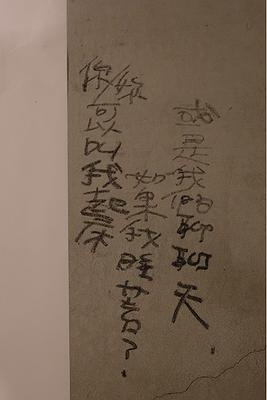 你/妳可以叫我起床
如果我睡著?
或是我們聊聊天